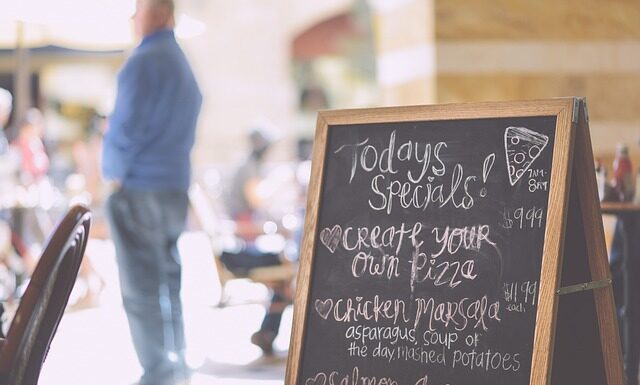 Todays
Specials!
7AM-
8PM
$9.99
♡ create your
own pizza
$11.99
each
♡ chicken Marsala
asparagus, soup of
the day, mashed potatoes
♡ Salmon